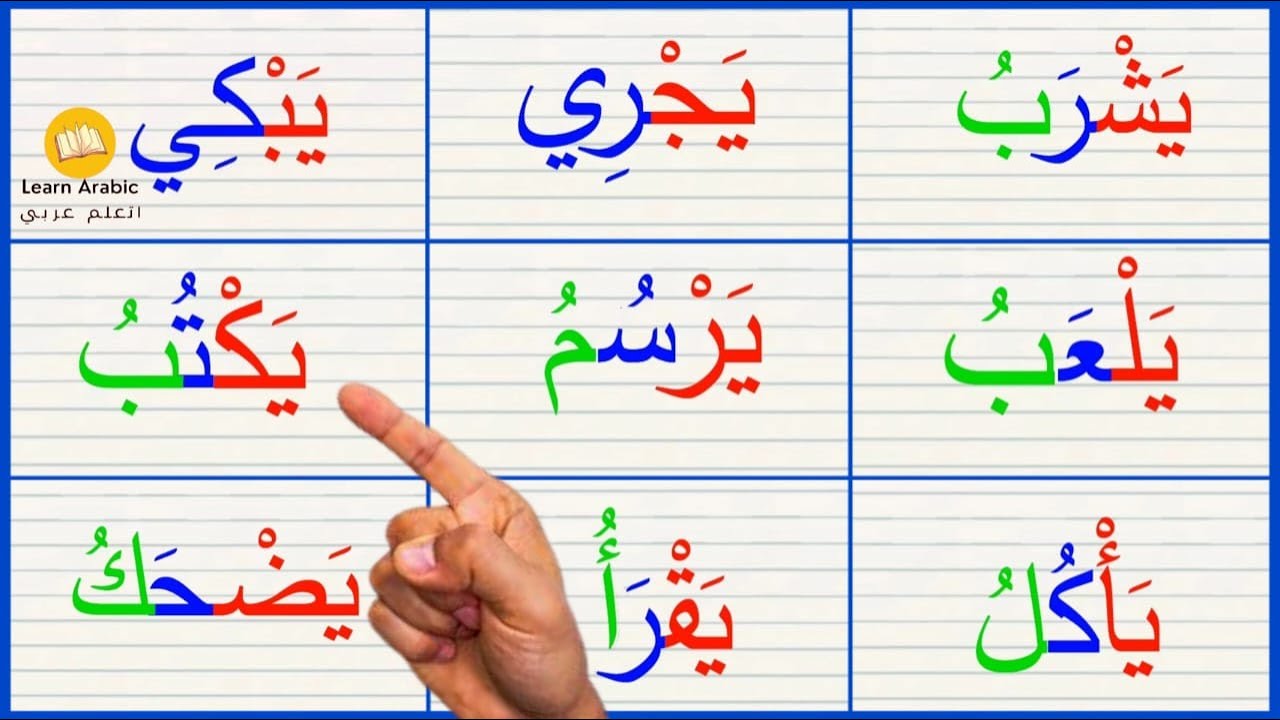 يَشْرَبُ
يَجْرِي
يَبْكِي
Learn Arabic
اتعلم عربي
يَلْعَبُ
يَرْسُمُ
يَكْتُبُ
يَأْكُلُ
يَقْرَأُ
يَضْحَكُ